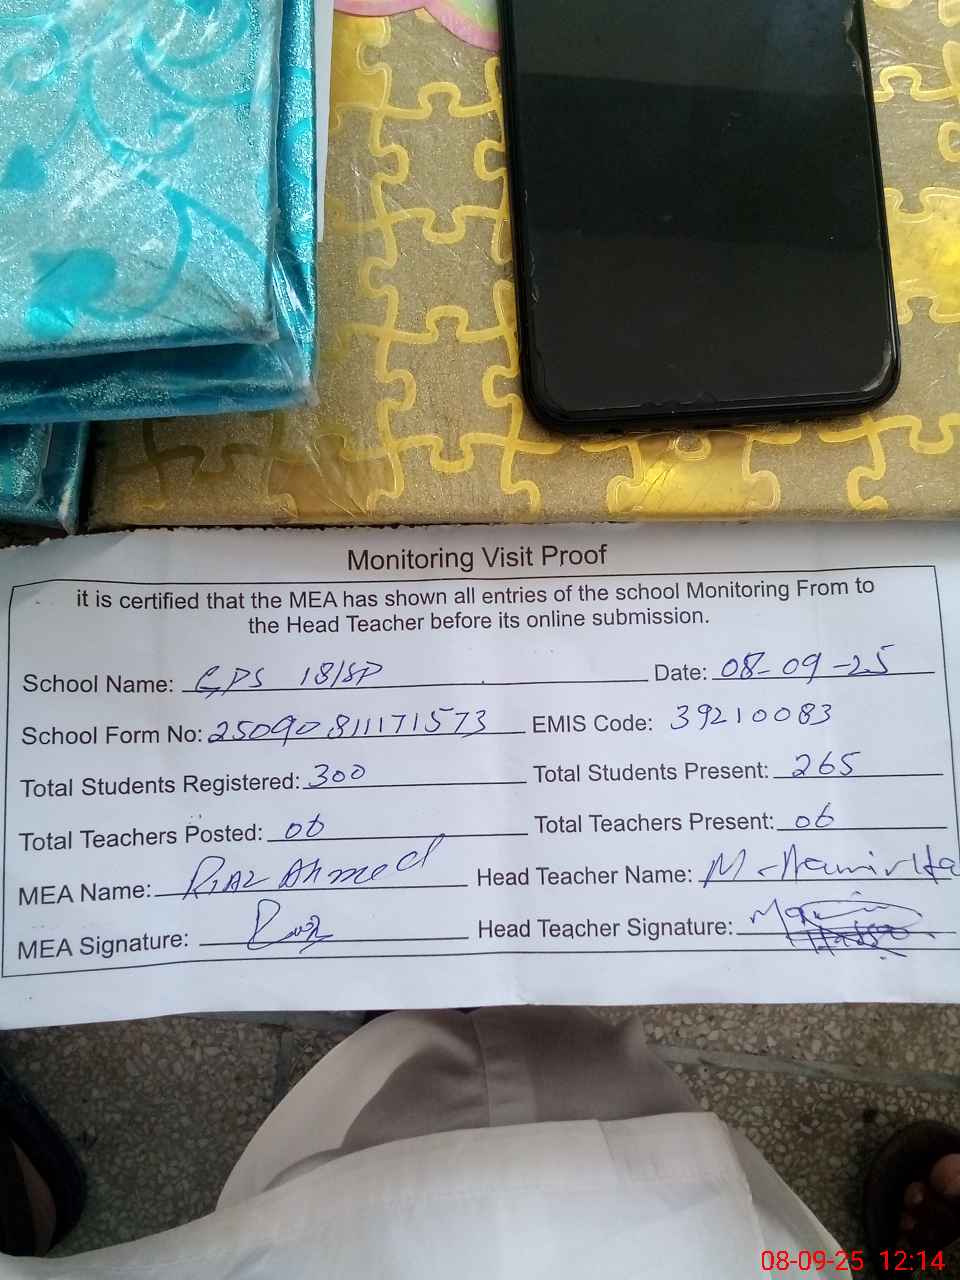 Monitoring Visit Proof
it is certified that the MEA has shown all entries of the school Monitoring From to
the Head Teacher before its online submission.
School Name: GPS 18/SP Date: 08-09-25
School Form No: 25090811171573 EMIS Code: 39210083
Total Students Registered: 300 Total Students Present: 265
Total Teachers Posted: 06 Total Teachers Present: 06
MEA Name: Riaz Ahmed Head Teacher Name: M.
MEA Signature: Head Teacher Signature:
08-09-25 12:14